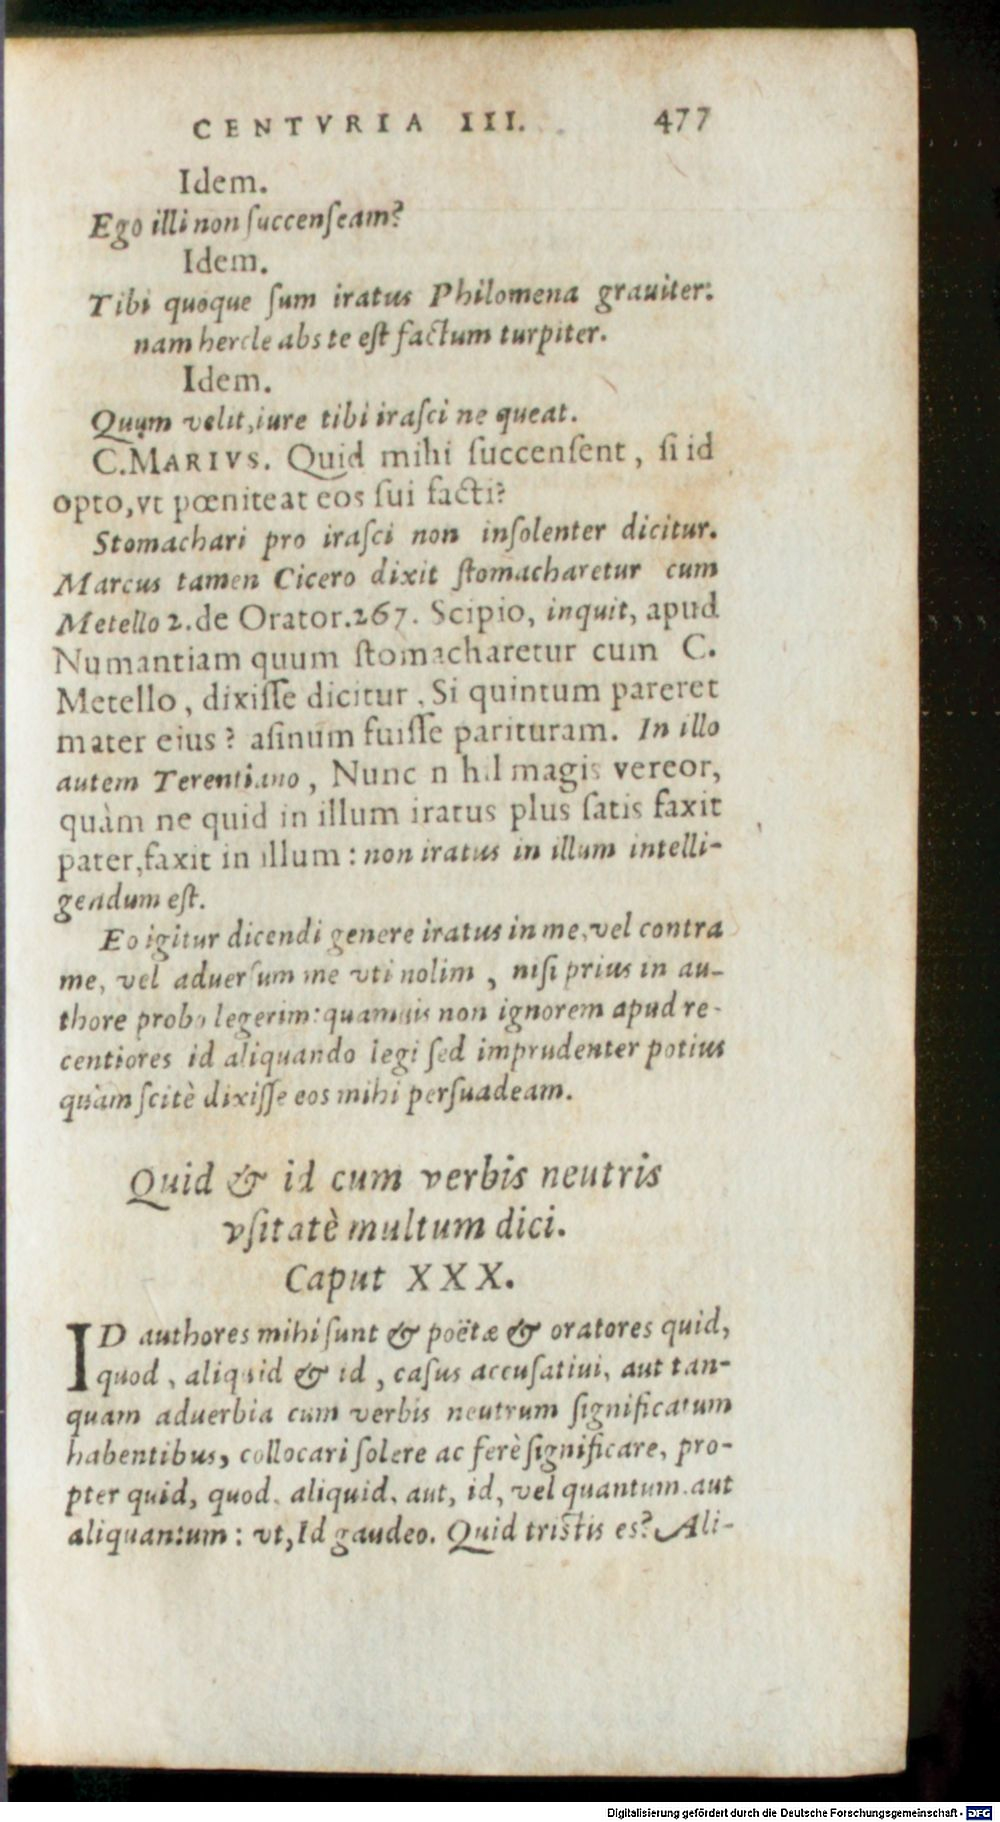 CENTVRIA III. 477
Idem.
Ego illi non ſuccenſeam?
Idem.
Tibi quoque ſum iratus Philomena grauiter:
nam hercle abs te eſt factum turpiter.
Idem.
Quum velit, iure tibi iraſci ne queat.
C.MARIVS. Quid mihi ſuccenſent, ſi id
opto, vt pœniteat eos ſui facti?
Stomachari pro iraſci non inſolenter dicitur.
Marcus tamen Cicero dixit ſtomacharetur cum
Metello 2. de Orator. 267. Scipio, inquit, apud
Numantiam quum ſtomacharetur cum C.
Metello, dixiſſe dicitur, Si quintum pareret
mater eius? aſinum fuiſſe parituram. In illo
autem Terentiano, Nunc nihil magis vereor,
quàm ne quid in illum iratus plus ſatis faxit
pater, faxit in illum: non iratus in illum intelli-
gendum eſt.
Eo igitur dicendi genere iratus in me, vel contra
me, vel aduerſum me vti nolim, niſi prius in au-
thore probo legerim: quamuis non ignorem apud re-
centiores id aliquando legi ſed imprudenter potius
quàm ſcitè dixiſſe eos mihi perſuadeam.
Quid & id cum verbis neutris
vſitatè multum dici.
Caput XXX.
ID authores mihi ſunt & poëtæ & oratores quid,
quod, aliquid & id, caſus accuſatiui, aut tan-
quam aduerbia cum verbis neutrum ſignificatum
habentibus, collocari ſolere ac ferè ſignificare, pro-
pter quid, quod, aliquid, aut, id, vel quantum, aut
aliquantum: vt, Id gaudeo. Quid triſtis es? Ali-
Digitalisierung gefördert durch die Deutsche Forschungsgemeinschaft - DFG